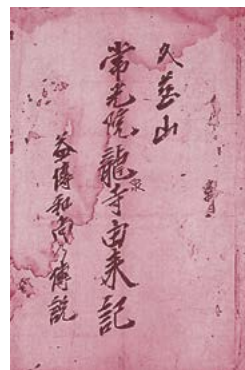 久慈山
常光院龍泉寺由来記
益傳和尚ノ傳説